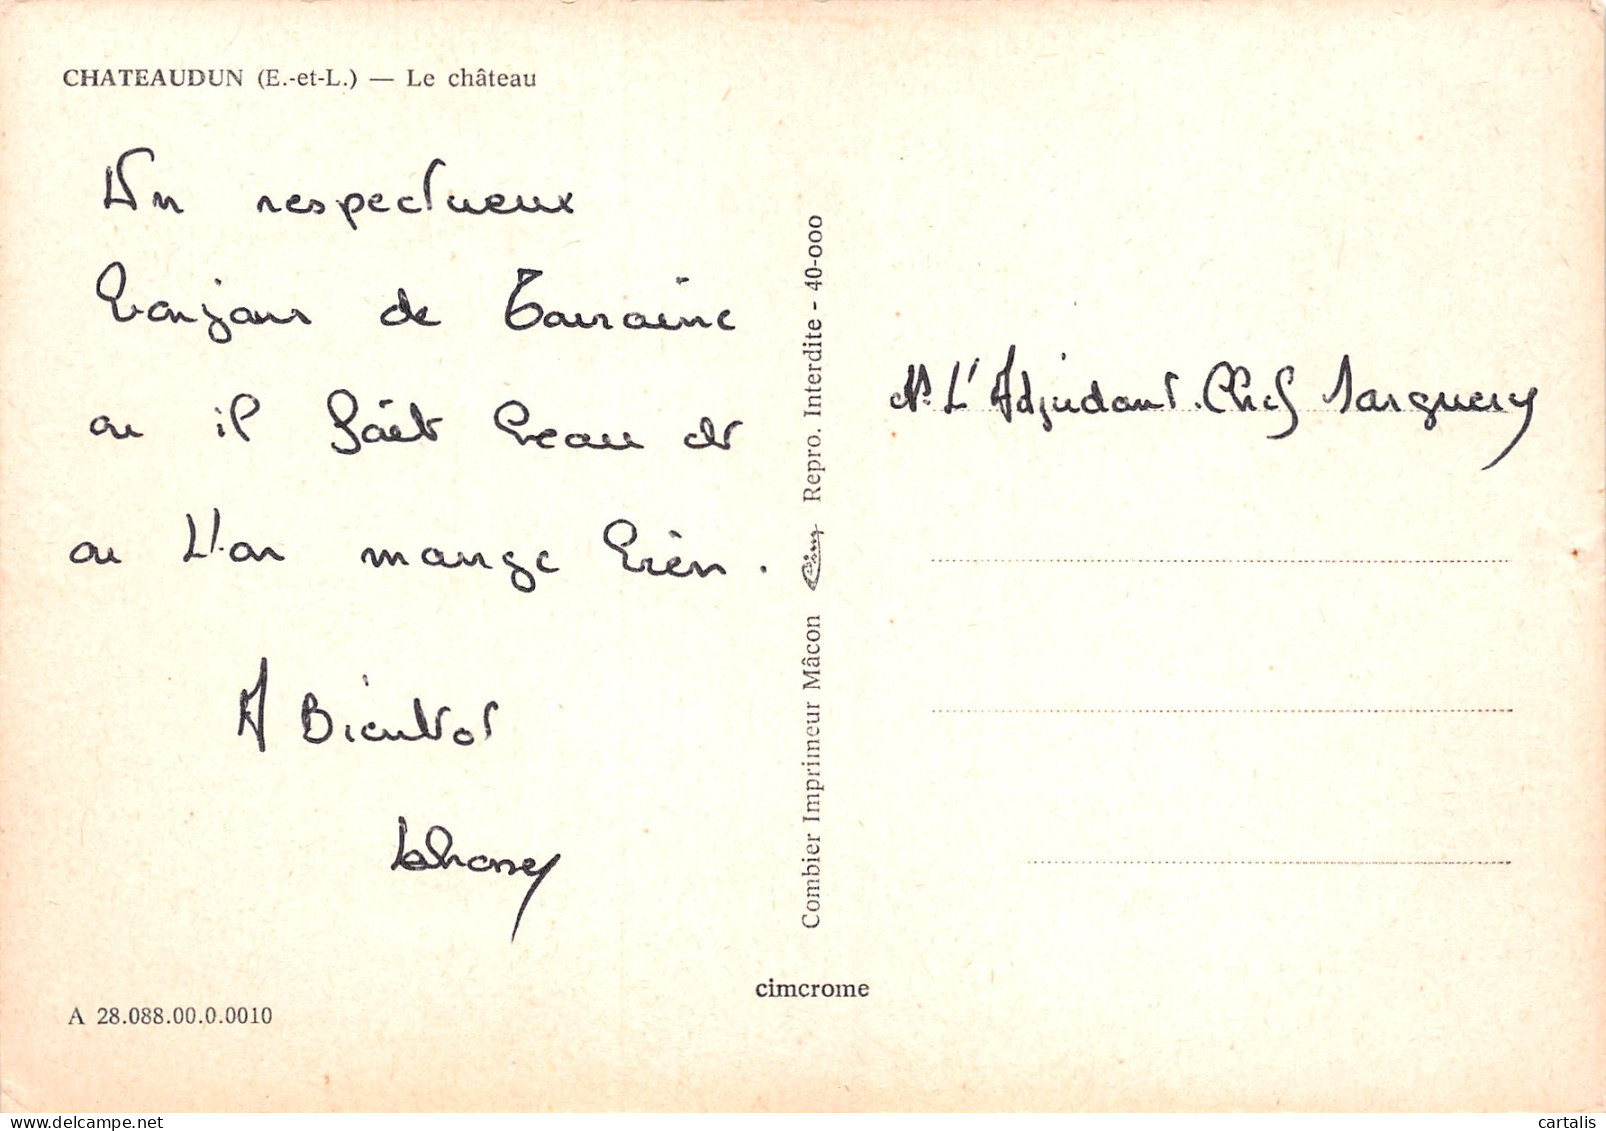 CHATEAUDUN (E.-et-L.) — Le château
Un respectueux
bonjour de Touraine
ou il fait beau et
ou l'on mange bien.
A Bientot
A 28.088.00.0.0010
Combier Imprimeur Mâcon Cim Repro. Interdite - 40-000
cimcrome
Mr L'Adjudant.Chef
cartalis